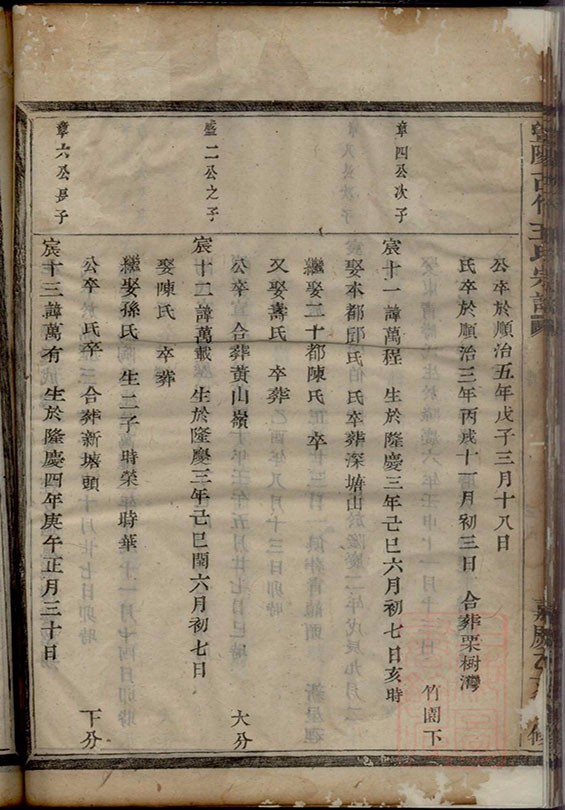 公卒於順治五年戊子三月十八日
氏卒於順治三年丙戌十一月初三日 合葬栗樹灣
竹園下
章四公次子
宸十一諱萬程 生於隆慶三年己巳六月初七日亥時
娶本都邵氏 氏卒葬深塘山
繼娶二十都陳氏 卒
又娶壽氏 卒葬
公卒 合葬黃山嶺
大分
盛二公之子
宸十二諱萬載 生於隆慶三年己巳閏六月初七日
娶陳氏 卒葬
繼娶孫氏 生二子 時榮 時華
公卒 氏卒 合葬新塘頭
下分
章六公長子
宸十三諱萬有 生於隆慶四年庚午正月三十日